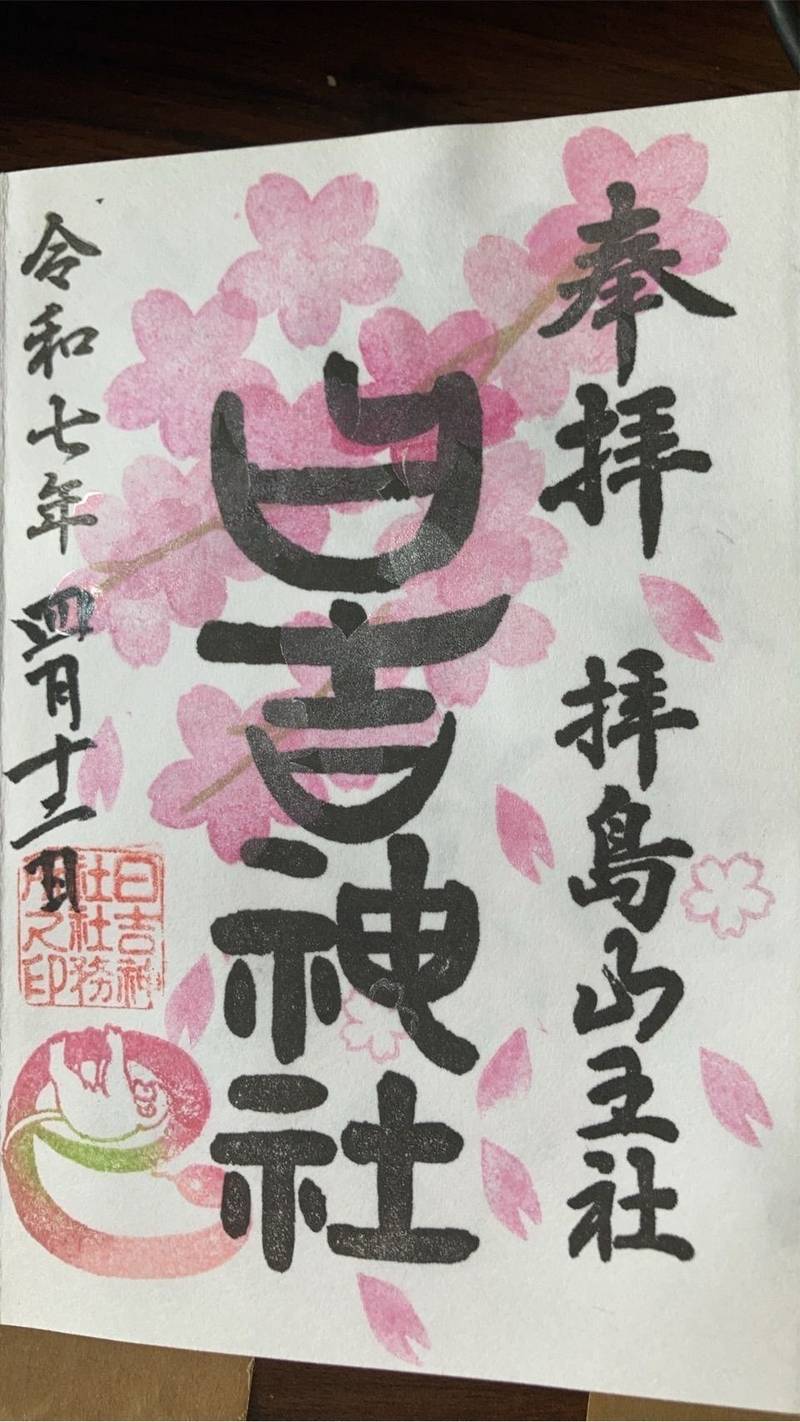 奉拝
拝島山王社
日吉神社
令和七年四月十二日
日吉神
社社務
所之印